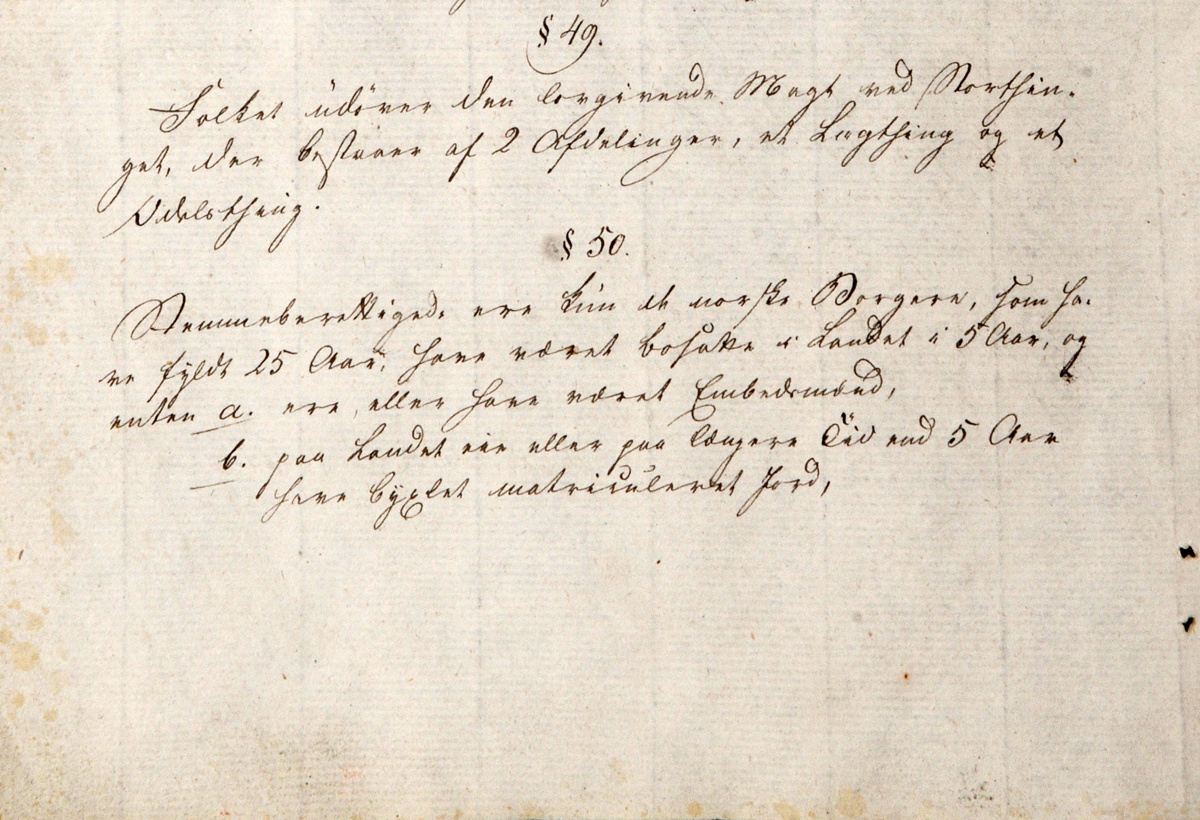 § 49.
Folket udöver den lovgivende Magt ved Storthin-
get, der bestaaer af 2 Afdelinger, et Lagthing og et
Odelsthing.
§ 50.
Stemmeberettigede ere kun de norske Borgere, som ha-
ve fyldt 25 Aar, have været bosatte i Landet i 5 Aar, og
enten a. ere, eller have været Embedsmænd,
b. paa Landet eie eller paa længere Tiid end 5 Aar
have byxlet matriculeret Jord,